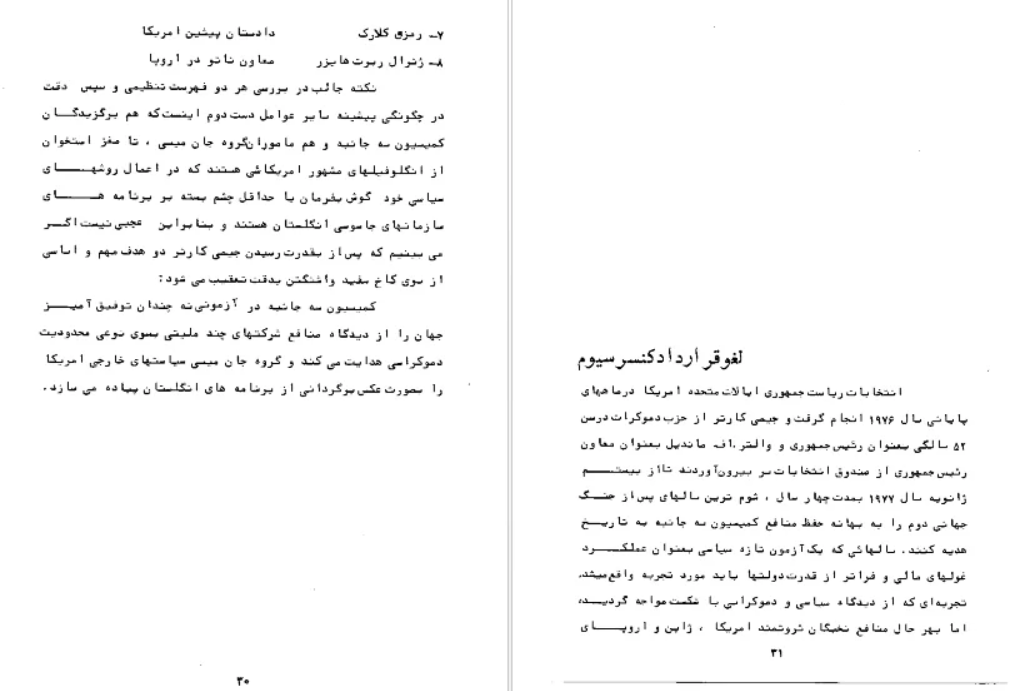 ۷- رمزی کلارک دادستان پیشین امریکا
۸- ژنرال ربرت هایزر معاون ناتو در اروپا
نکته جالب در بررسی هر دو فهرست تنظیمی و سپس دقت
در چگونگی پیشینه سایر عوامل دست دوم اینست که هم برگزیدگان
کمیسیون سه جانبه و هم ماموران گروه جان میسی ، تا مغز استخوان
از انگلوفیلهای مشهور امریکائی هستند که در اعمال روشهای
سیاسی خود گوش بفرمان یا حداقل چشم بسته بر برنامه های
سازمانهای جاسوسی انگلستان هستند و بنابراین عجبی نیست اگر
می بینیم که پس از بقدرت رسیدن جیمی کارتر دو هدف مهم و اساسی
از سوی کاخ سفید واشنگتن بدقت تعقیب می شود:
کمیسیون سه جانبه در آزمونی نه چندان توفیق آمیز
جهان را از دیدگاه منافع شرکتهای چند ملیتی بسوی نوعی محدودیت
دموکراسی هدایت می کند و گروه جان میسی سیاستهای خارجی امریکا
را بصورت عکس برگردانی از برنامه های انگلستان پیاده می سازد.
۳۰
لغو قرارداد کنسرسیوم
انتخابات ریاست جمهوری ایالات متحده امریکا در ماههای
پایانی سال ۱۹۷۶ انجام گرفت و جیمی کارتر از حزب دموکرات در سن
۵۲ سالگی بعنوان رئیس جمهوری و والتر.اف. ماندیل بعنوان معاون
رئیس جمهوری از صندوق انتخابات سر بیرون آوردند تا از بیستم
ژانویه سال ۱۹۷۷ بمدت چهار سال ، شوم ترین سالهای پس از جنگ
جهانی دوم را به بهانه حفظ منافع کمیسیون سه جانبه به تاریخ
هدیه کنند. سالهائی که یک آزمون تازه سیاسی بعنوان عملکرد
غولهای مالی و فراتر از قدرت دولتها باید مورد تجربه واقع میشد.
تجربه‌ای که از دیدگاه سیاسی و دموکراسی با شکست مواجه گردید،
اما بهر حال منافع نخبگان ثروتمند امریکا ، ژاپن و اروپای
۳۱